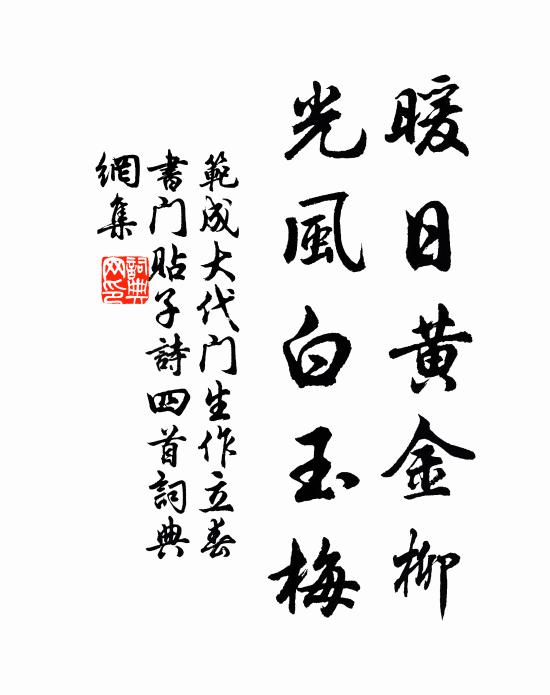 暖日黃金柳
光風白玉梅
範成大代門生作立春
書門貼子詩四首詞典
網集
詞典
网印